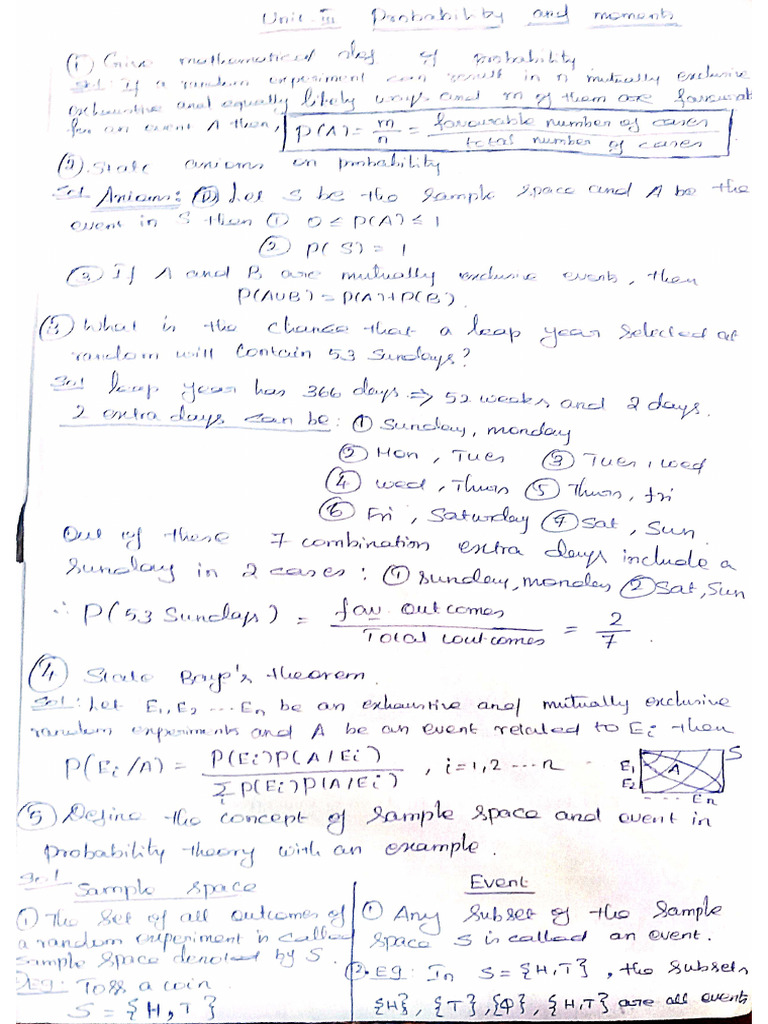 Unit-III Probability and moments
① Give mathematical def of probability
Sol: If a random experiment can result in n mutually exclusive
exhaustive and equally likely ways and m of them are favourable
for an event A then, P(A) = m/n = favourable number of cases / total number of cases
②. State axioms on probability
Sol Axioms: ① Let S be the sample space and A be the
event in S then ① 0 ≤ P(A) ≤ 1
② P(S) = 1
③ If A and B are mutually exclusive events, then
P(AUB) = P(A)+P(B).
③ What is the chance that a leap year selected at
random will contain 53 Sundays?
Sol leap year has 366 days ⇒ 52 weeks and 2 days.
2 extra days can be: ① Sunday, monday
② Mon, Tues ③ Tues, wed
④ wed, Thurs ⑤ Thurs, fri
⑥ Fri, Saturday ⑦ Sat, Sun.
Out of these 7 combination extra days include a
Sunday in 2 cases: ① Sunday, monday ② Sat, Sun
∴ P(53 Sundays) = fav outcomes / Total outcomes = 2/7.
④ State Baye's theorem.
Sol: Let E₁, E₂ ... En be an exhaustive and mutually exclusive
random experiments and A be an event related to Ei then
P(Ei/A) = P(Ei)P(A/Ei) / Σi P(Ei)P(A/Ei), i=1,2...n
E₁ A S
E₂
- - - - En
⑤ Define the concept of sample space and event in
probability theory with an example.
Sol
Sample space
① The set of all outcomes of
a random experiment is called
sample space denoted by S.
Eg: Toss a coin
S = {H, T}
Event
① Any subset of the sample
space S is called an event.
②. Eg: In S = {H,T}, the subsets
{H}, {T}, {Φ}, {H,T} are all events